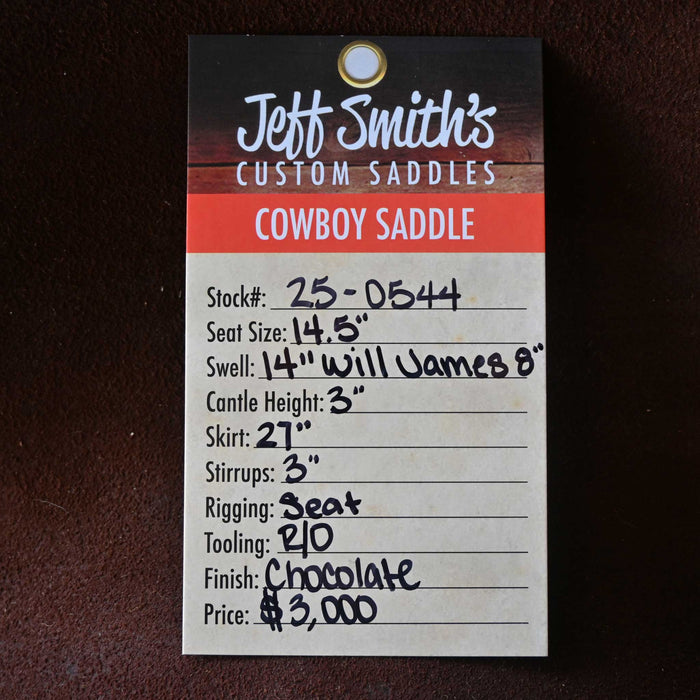 Jeff Smith's
CUSTOM SADDLES
COWBOY SADDLE
Stock#: 25-0544
Seat Size: 14.5"
Swell: 14" Will James 8"
Cantle Height: 3"
Skirt: 27"
Stirrups: 3"
Rigging: Seat
Tooling: R/O
Finish: Chocolate
Price: $3,000